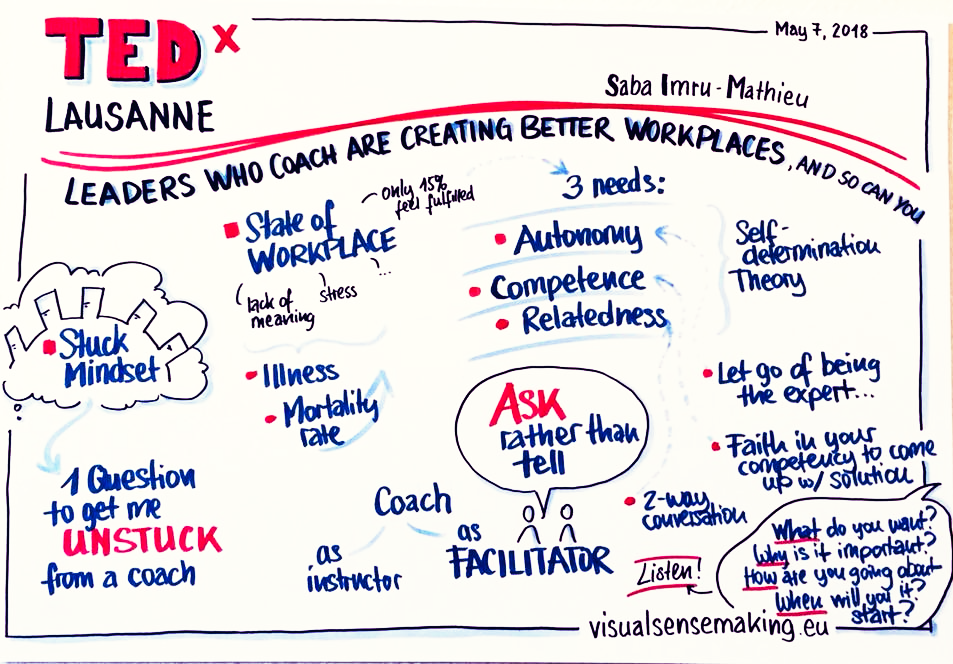 TEDx
LAUSANNE
May 7, 2018
Saba Imru-Mathieu
LEADERS WHO COACH ARE CREATING BETTER WORKPLACES, AND SO CAN YOU
Stuck
Mindset
1 Question
to get me
UNSTUCK
from a coach
State of
WORKPLACE
only 15%
feel fulfilled
(lack of
meaning
stress
?...
Illness
Mortality
rate
3 needs:
Autonomy
Competence
Relatedness
Self-
determination
Theory
ASK
rather than
tell
Coach
as
instructor
as
FACILITATOR
Let go of being
the expert...
Faith in your
competency to come
up w/ solution
2-way
conversation
Listen!
What do you want?
Why is it important?
How are you going about
it?
When will you
start?
visualsensemaking.eu